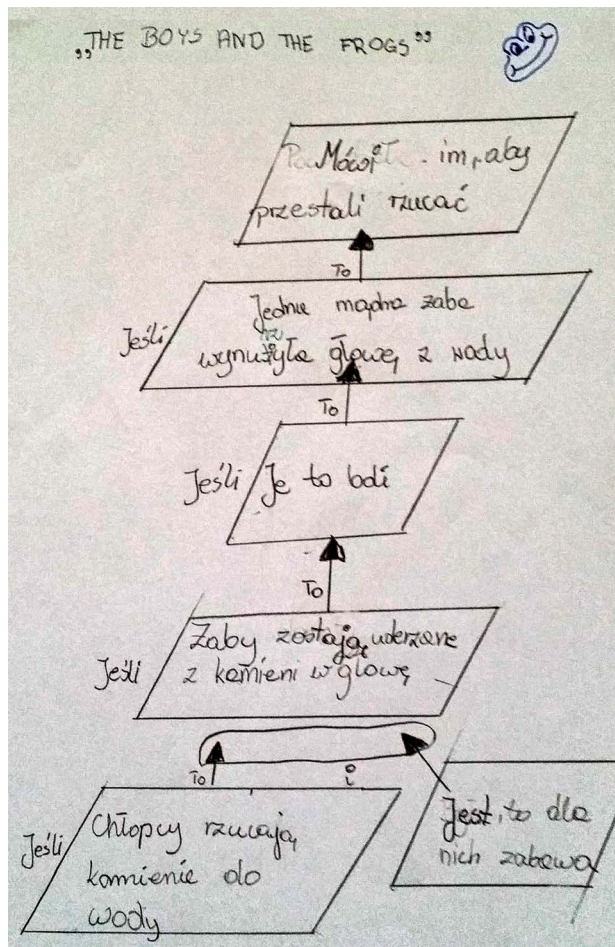 „THE BOYS AND THE FROGS"
Mówi im, aby
przestali rzucać
To
Jeśli
Jedna mądra żaba
wynużyła głowę z wody
To
Jeśli
Je to boli
To
Jeśli
Żaby zostają uderzane
z kamieni w głowę
To
i
Jeśli
Chłopcy rzucają
kamienie do
wody
Jest to dla
nich zabawą